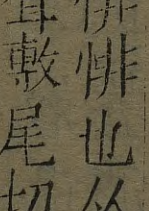 悱悱也从
聲敷尾切